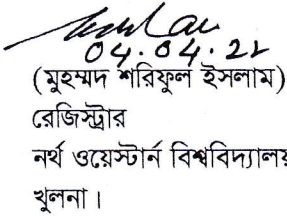 04.04.22
(মুহম্মদ শরিফুল ইসলাম)
রেজিস্ট্রার
নর্থ ওয়েস্টার্ন বিশ্ববিদ্যালয়
খুলনা।